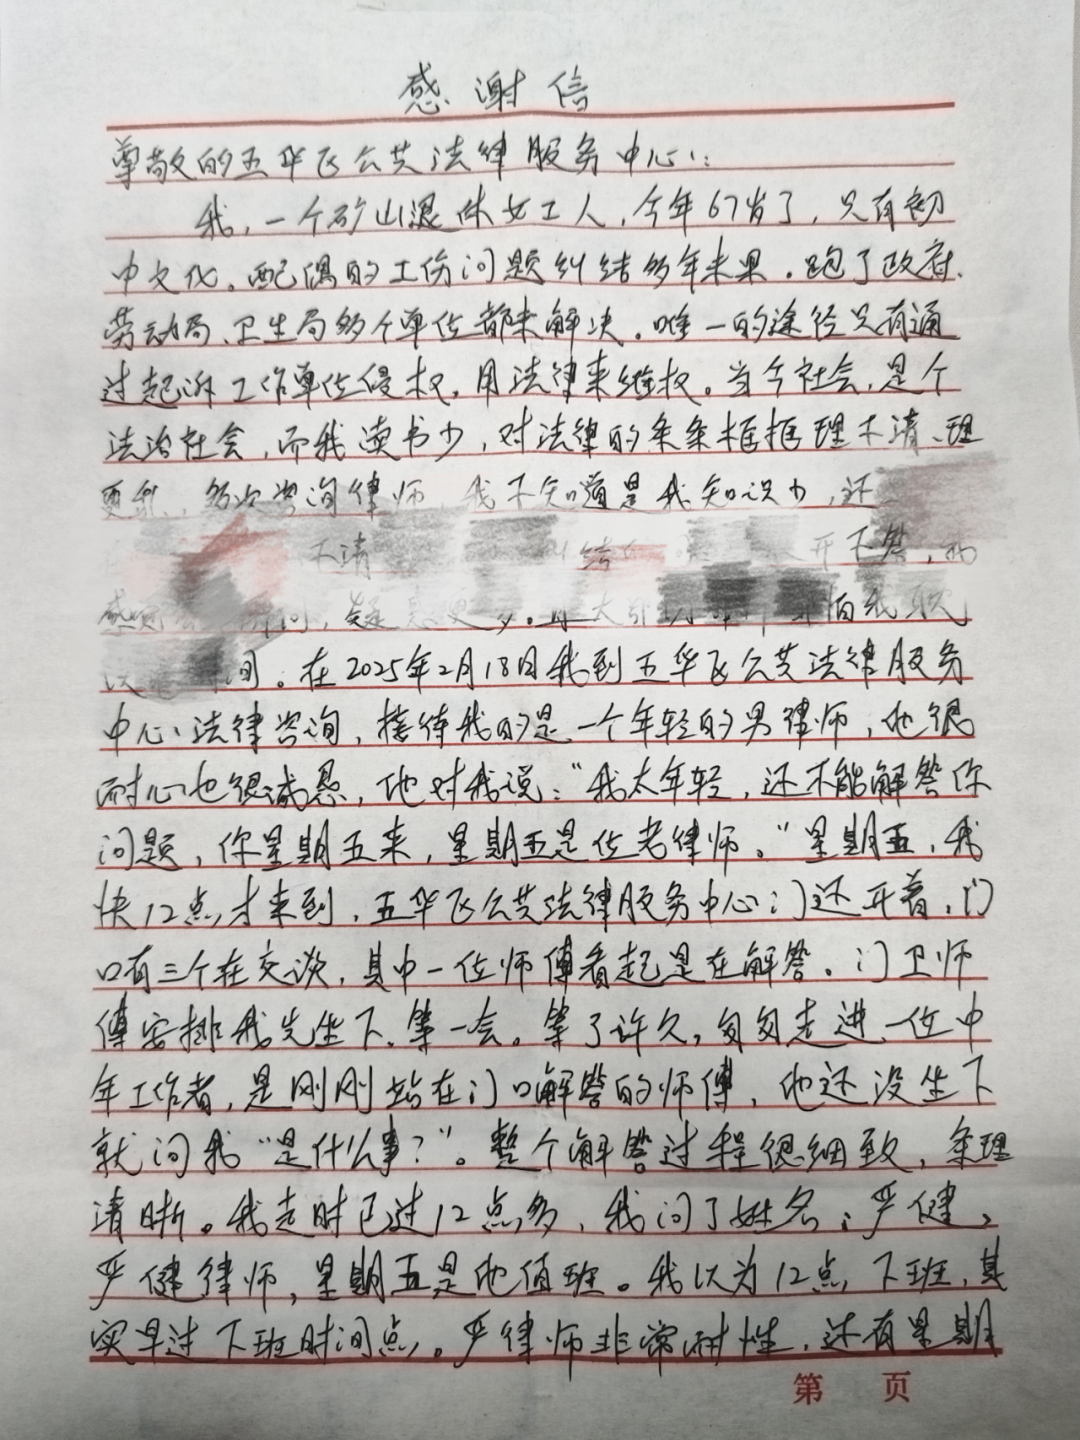 感谢信
尊敬的五华区公共法律服务中心:
我,一个矿山退休女工人,今年67岁了,只有初
中文化。配偶的工伤问题纠结多年未果。跑了政府、
劳动局、卫生局多个单位都未解决。唯一的途径只有通
过起诉工作单位侵权,用法律来维权。当今社会,是个
法治社会,而我读书少,对法律的条条框框理不清、理
更乱,多次咨询律师,我不知道是我知识少,还
不清 开不答,
问,疑惑更多。 怕我耽
间。在2025年2月18日我到五华区公共法律服务
中心法律咨询,接待我的是一个年轻的男律师,他很
耐心也很诚恳,他对我说:"我太年轻,还不能解答你
问题,你星期五来,星期五是位老律师。"星期五,我
快12点才来到,五华区公共法律服务中心门还开着,门
口有三个在交谈,其中一位师傅看起是在解答。门卫师
傅安排我先坐下,等一会。等了许久,匆匆走进一位中
年工作者,是刚刚站在门口解答的师傅,他还没坐下
就问我"是什么事?"。整个解答过程很细致,条理
清晰。我走时已过12点多,我问了姓名:严健,
严健律师,星期五是他值班。我以为12点下班,其
实早过下班时间点。严律师非常耐性,还有星期
第 页